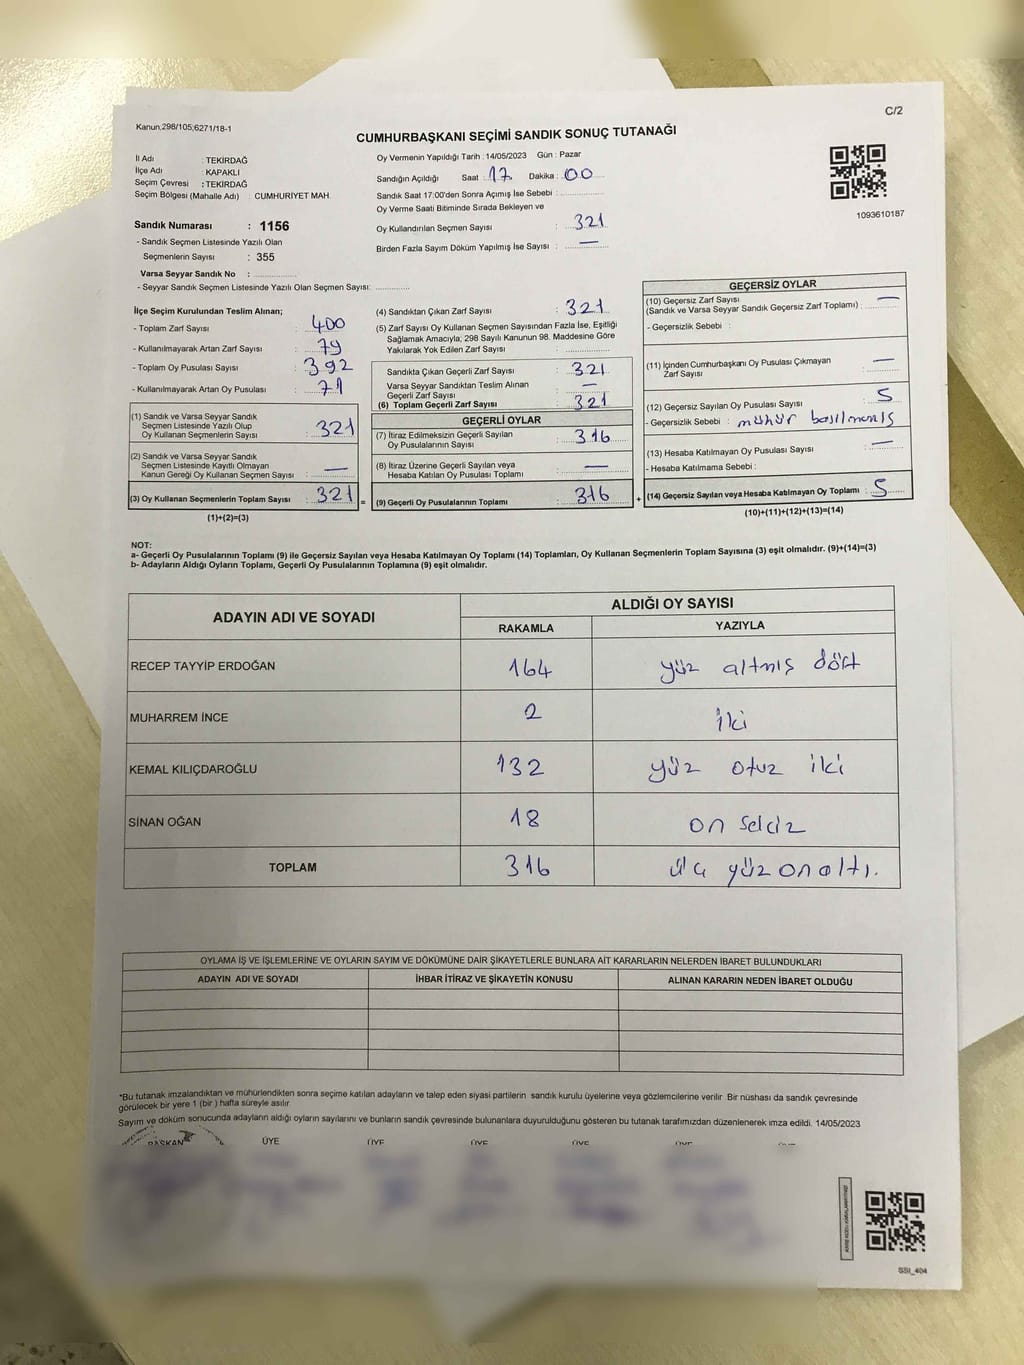 C/2
Kanun,298/105;6271/18-1
CUMHURBAŞKANI SEÇİMİ SANDIK SONUÇ TUTANAĞI
İl Adı : TEKİRDAĞ
İlçe Adı : KAPAKLI
Seçim Çevresi : TEKİRDAĞ
Seçim Bölgesi (Mahalle Adı) : CUMHURİYET MAH.
Oy Vermenin Yapıldığı Tarih : 14/05/2023 Gün : Pazar
Sandığın Açıldığı Saat : 17 Dakika : 00
Sandık Saat 17:00'den Sonra Açımış İse Sebebi :
Oy Verme Saati Bitiminde Sırada Bekleyen ve
Oy Kullandırılan Seçmen Sayısı : 321
Birden Fazla Sayım Döküm Yapılmış İse Sayısı : —
1093610187
Sandık Numarası : 1156
- Sandık Seçmen Listesinde Yazılı Olan
Seçmenlerin Sayısı : 355
Varsa Seyyar Sandık No :
- Seyyar Sandık Seçmen Listesinde Yazılı Olan Seçmen Sayısı:
İlçe Seçim Kurulundan Teslim Alınan;
- Toplam Zarf Sayısı : 400
- Kullanılmayarak Artan Zarf Sayısı : 79
- Toplam Oy Pusulası Sayısı : 392
- Kullanılmayarak Artan Oy Pusulası : 71
(1) Sandık ve Varsa Seyyar Sandık
Seçmen Listesinde Yazılı Olup
Oy Kullanan Seçmenlerin Sayısı : 321
(2) Sandık ve Varsa Seyyar Sandık
Seçmen Listesinde Kayıtlı Olmayan
Kanun Gereği Oy Kullanan Seçmen Sayısı : —
(3) Oy Kullanan Seçmenlerin Toplam Sayısı : 321 =
(1)+(2)=(3)
(4) Sandıktan Çıkan Zarf Sayısı : 321
(5) Zarf Sayısı Oy Kullanan Seçmen Sayısından Fazla İse, Eşitliği
Sağlamak Amacıyla; 298 Sayılı Kanunun 98. Maddesine Göre
Yakılarak Yok Edilen Zarf Sayısı :
Sandıkta Çıkan Geçerli Zarf Sayısı : 321
Varsa Seyyar Sandıktan Teslim Alınan
Geçerli Zarf Sayısı : —
(6) Toplam Geçerli Zarf Sayısı : 321
GEÇERLİ OYLAR
(7) İtiraz Edilmeksizin Geçerli Sayılan
Oy Pusulalarının Sayısı : 316
(8) İtiraz Üzerine Geçerli Sayılan veya
Hesaba Katılan Oy Pusulası Toplamı : —
(9) Geçerli Oy Pusulalarının Toplamı : 316 +
GEÇERSİZ OYLAR
(10) Geçersiz Zarf Sayısı : —
(Sandık ve Varsa Seyyar Sandık Geçersiz Zarf Toplamı)
- Geçersizlik Sebebi :
(11) İçinden Cumhurbaşkanı Oy Pusulası Çıkmayan
Zarf Sayısı : —
(12) Geçersiz Sayılan Oy Pusulası Sayısı : 5
- Geçersizlik Sebebi : mühür basılmamış
(13) Hesaba Katılmayan Oy Pusulası Sayısı : —
- Hesaba Katılmama Sebebi :
(14) Geçersiz Sayılan veya Hesaba Katılmayan Oy Toplamı : 5
(10)+(11)+(12)+(13)=(14)
NOT:
a- Geçerli Oy Pusulalarının Toplamı (9) ile Geçersiz Sayılan veya Hesaba Katılmayan Oy Toplamı (14) Toplamları, Oy Kullanan Seçmenlerin Toplam Sayısına (3) eşit olmalıdır. (9)+(14)=(3)
b- Adayların Aldığı Oyların Toplamı, Geçerli Oy Pusulalarının Toplamına (9) eşit olmalıdır.
ADAYIN ADI VE SOYADI ALDIĞI OY SAYISI
RAKAMLA YAZIYLA
RECEP TAYYİP ERDOĞAN 164 yüz altmış dört
MUHARREM İNCE 2 iki
KEMAL KILIÇDAROĞLU 132 yüz otuz iki
SİNAN OĞAN 18 on sekiz
TOPLAM 316 üç yüz on altı.
OYLAMA İŞ VE İŞLEMLERİNE VE OYLARIN SAYIM VE DÖKÜMÜNE DAİR ŞİKAYETLERLE BUNLARA AİT KARARLARIN NELERDEN İBARET BULUNDUKLARI
ADAYIN ADI VE SOYADI İHBAR İTİRAZ VE ŞİKAYETİN KONUSU ALINAN KARARIN NEDEN İBARET OLDUĞU
*Bu tutanak imzalandıktan ve mühürlendikten sonra seçime katılan adayların ve talep eden siyasi partilerin sandık kurulu üyelerine veya gözlemcilerine verilir. Bir nüshası da sandık çevresinde
görülecek bir yere 1 (bir ) hafta süreyle asılır.
Sayım ve döküm sonucunda adayların aldığı oyların sayılarını ve bunların sandık çevresinde bulunanlara duyurulduğunu gösteren bu tutanak tarafımızdan düzenlenerek imza edildi. 14/05/2023
BAŞKAN ÜYE ÜYE ÜYE ÜYE ÜYE
SSI_404